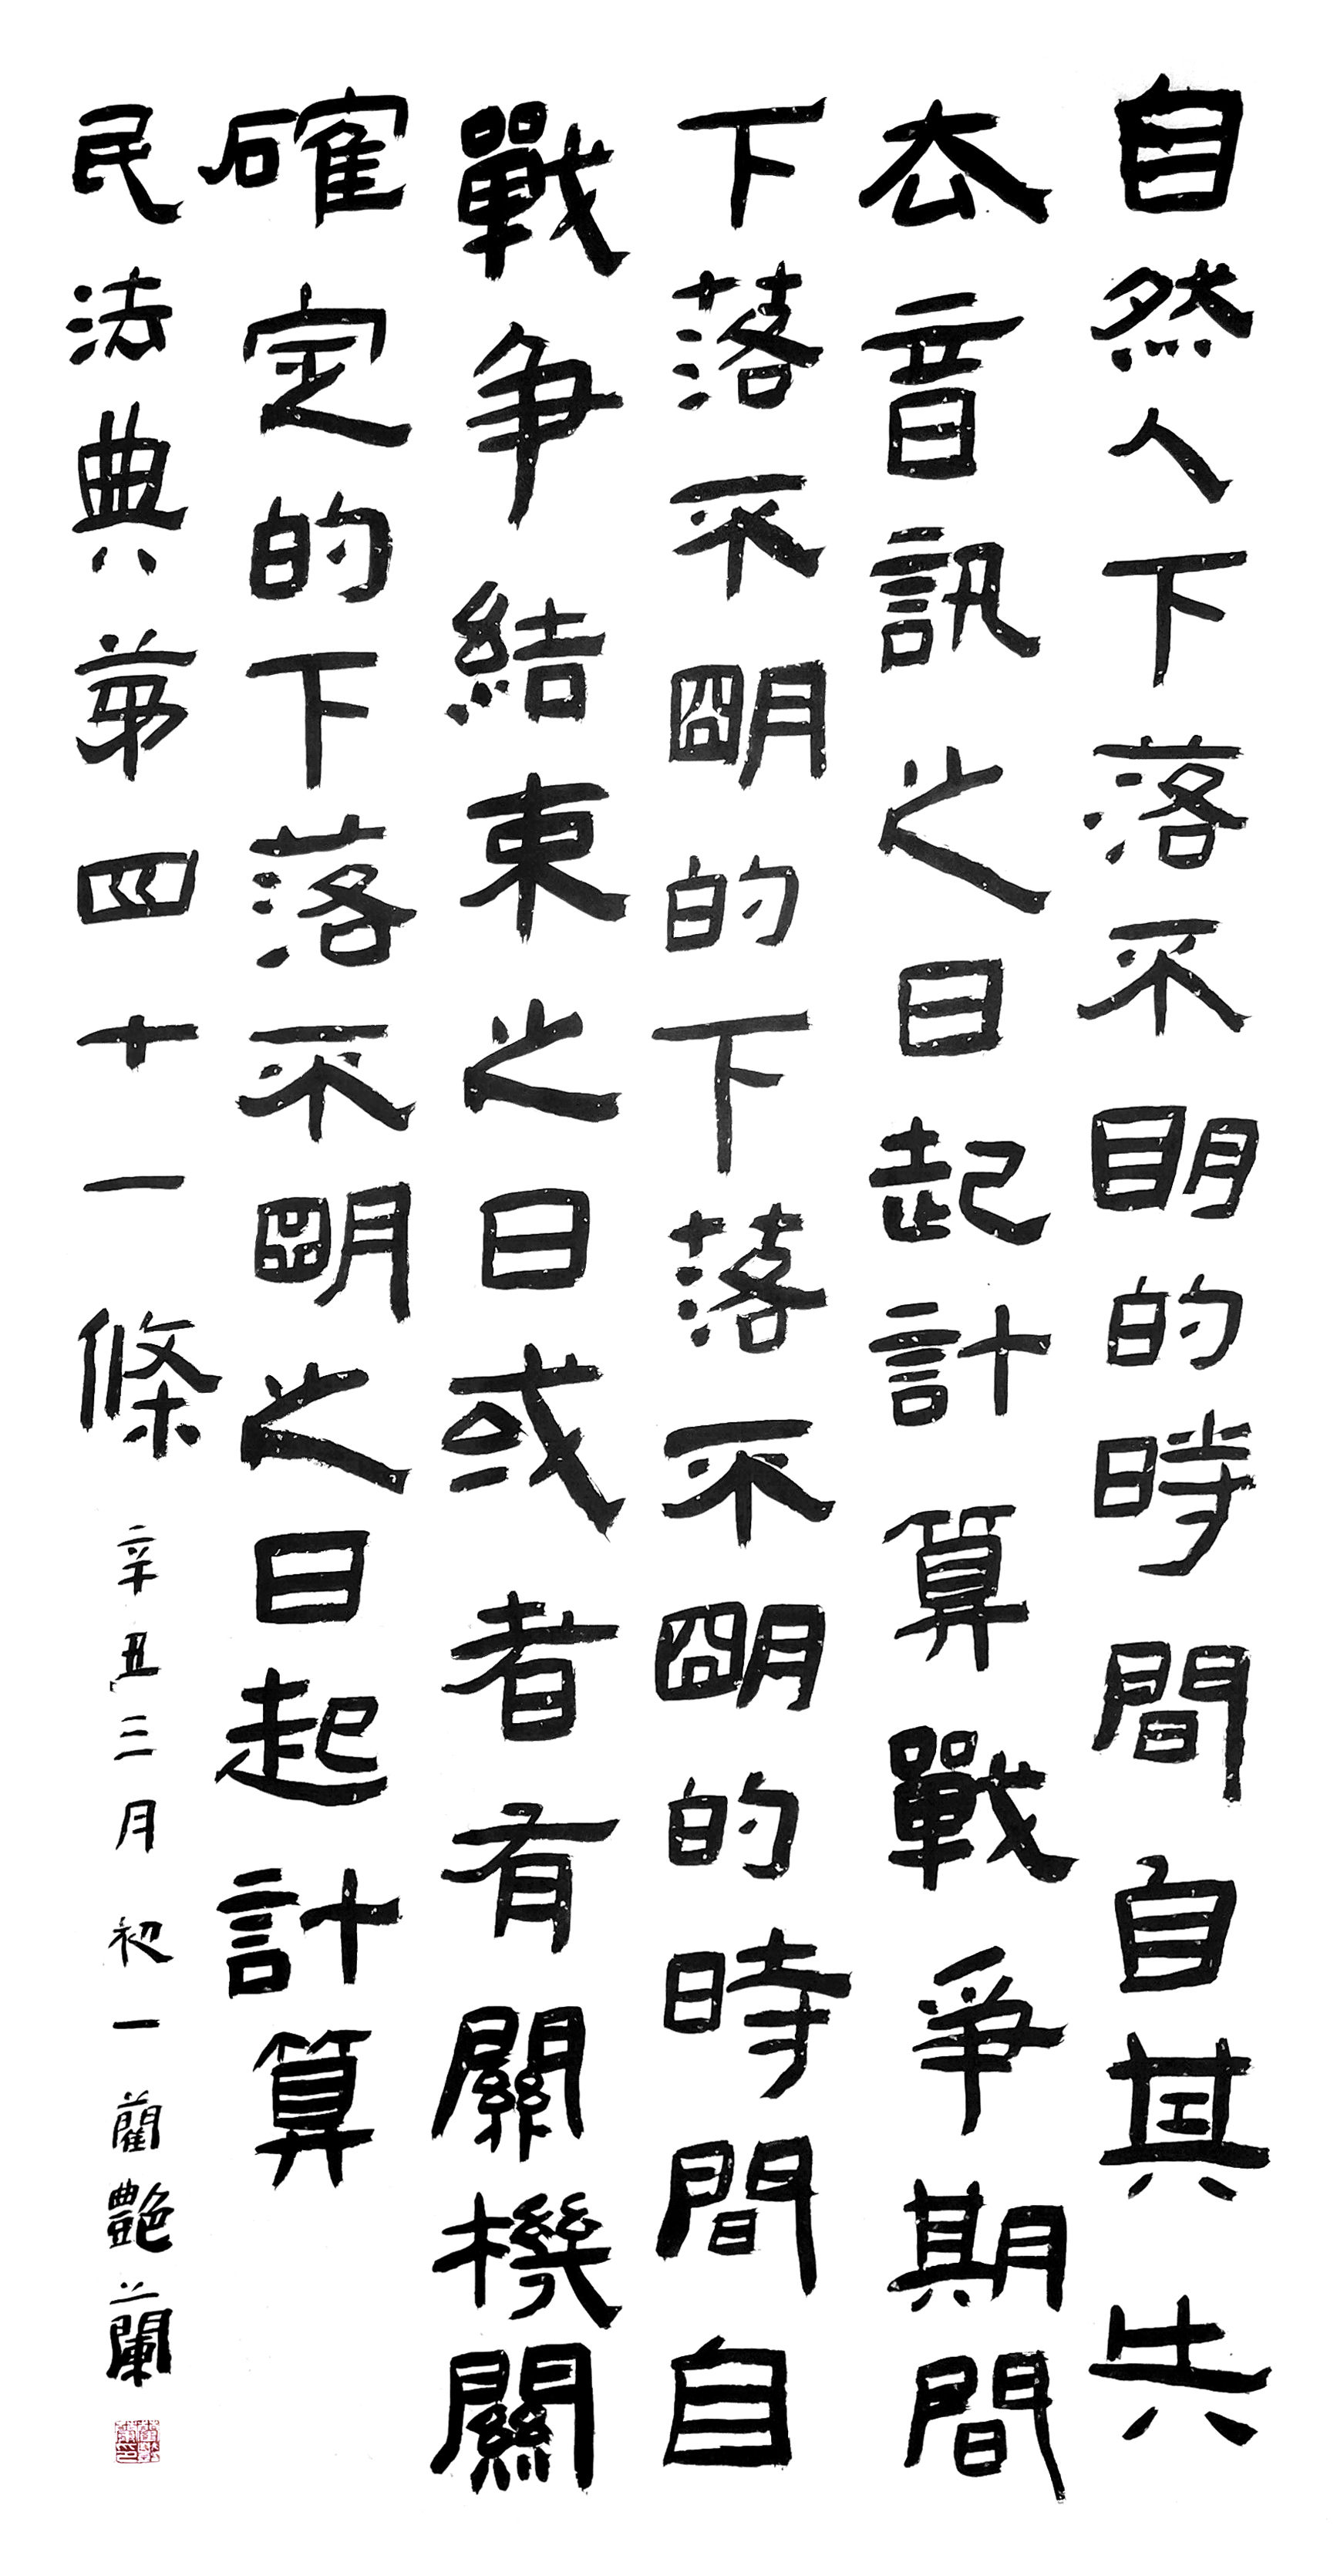 自然人下落不明的時間自其失
去音訊之日起計算戰爭期間
下落不明的下落不明的時間自
戰争結束之日或者有關機關
確定的下落不明之日起計算
民法典第四十一條 辛丑三月初一藺艷蘭